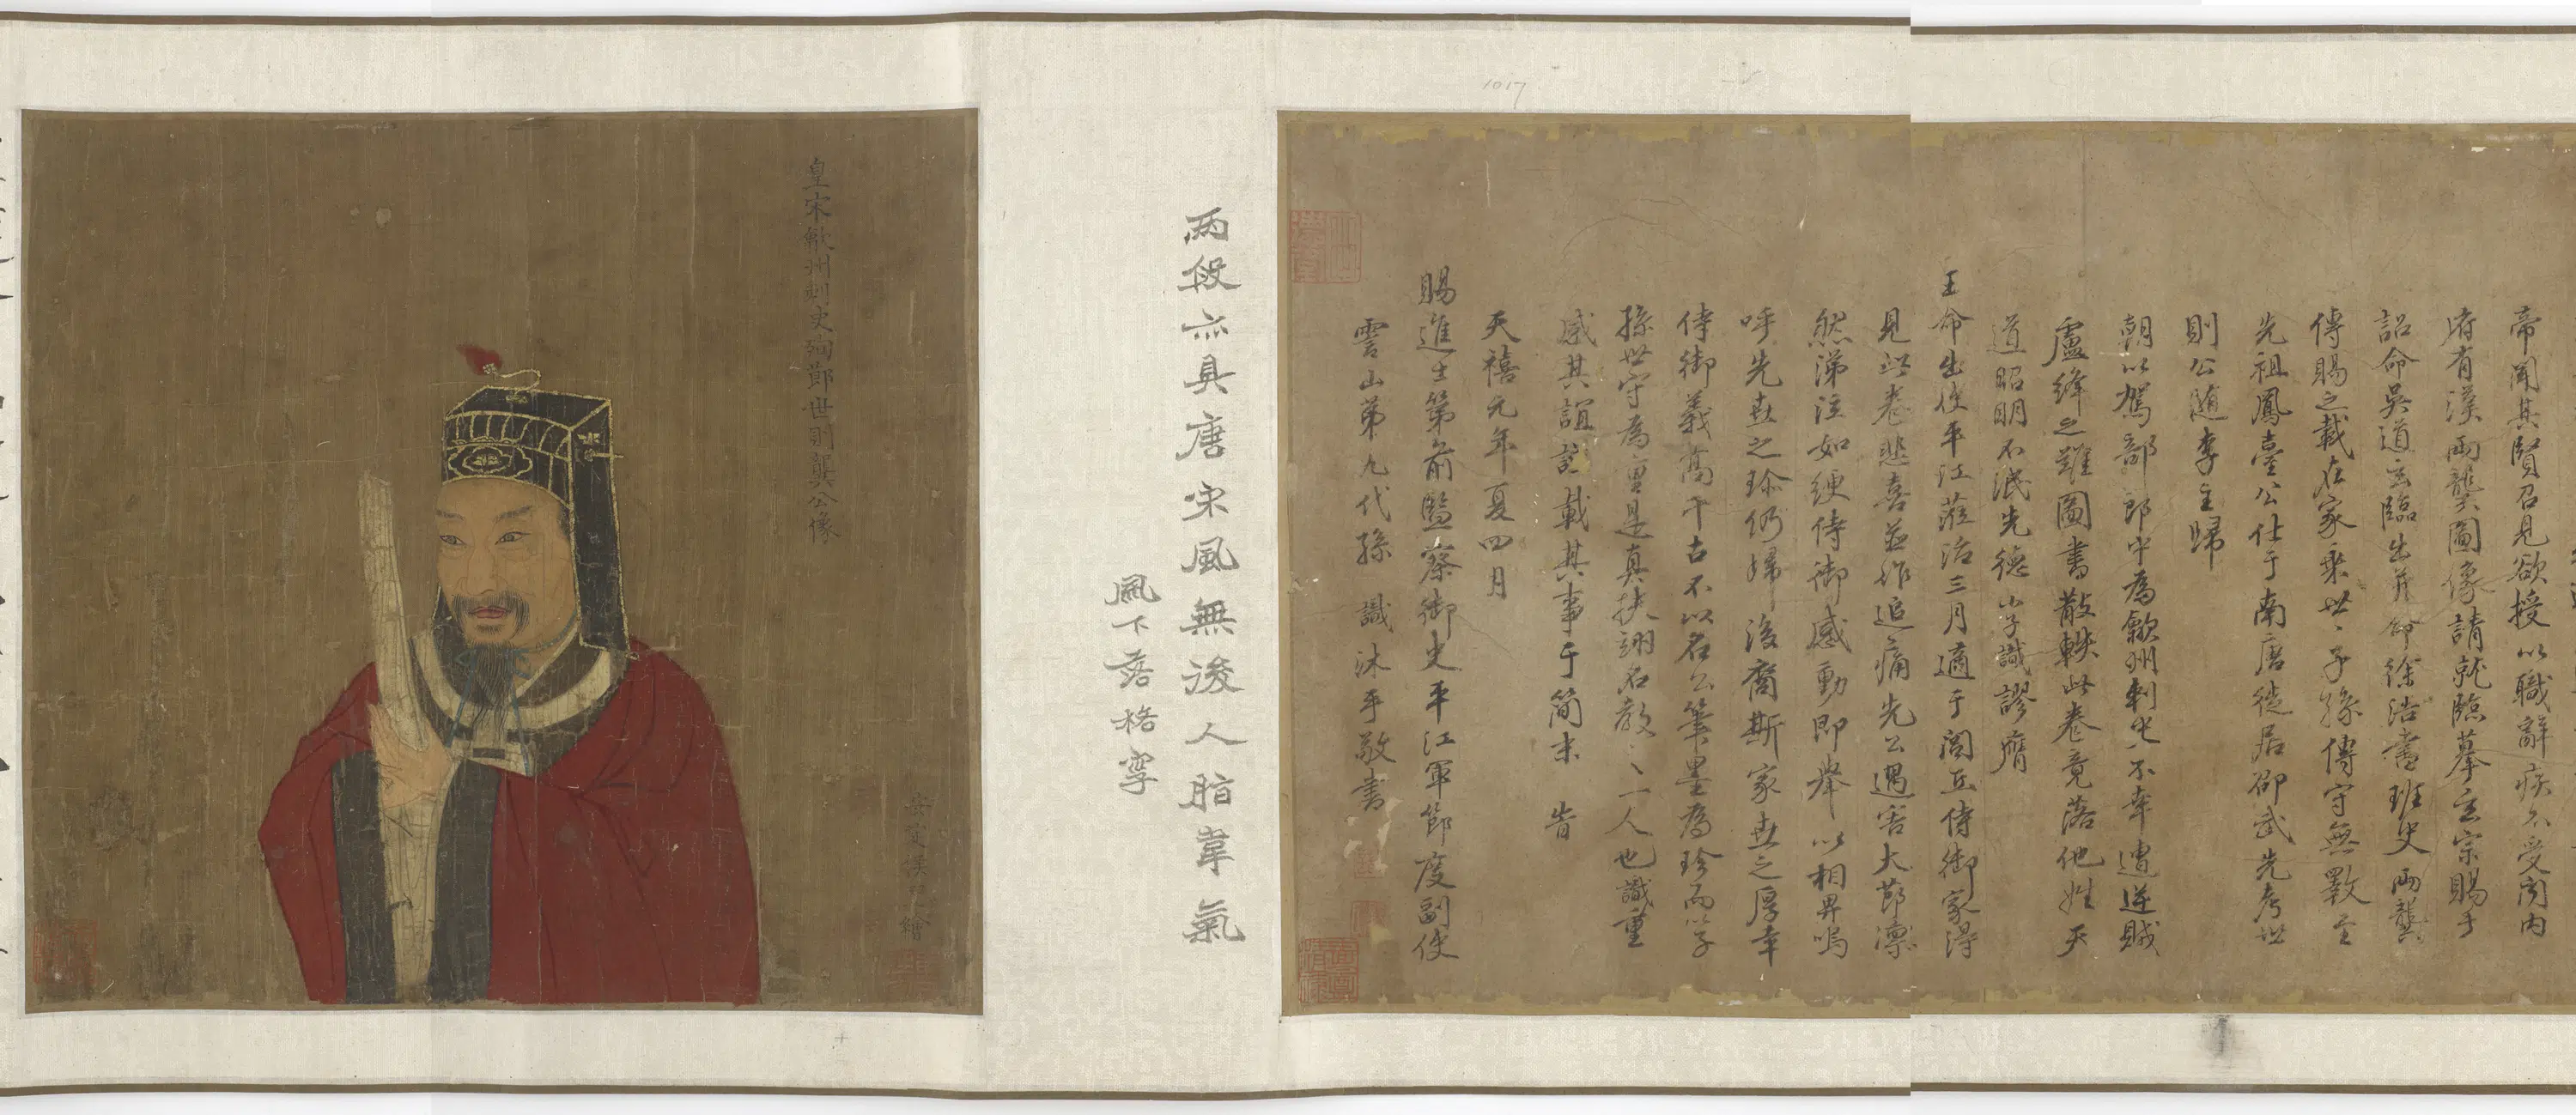 帝聞其賢召見欲授以職辭疾不受閱內
府有漢兩龔圖像請就臨摹玄宗賜于
詔命吳道玄臨出并命徐浩書班史兩龔
傳賜之載在家乘世〻子孫傳守無斁至
先祖鳳臺公仕于南唐徙居邵武先考世
則公隨李主歸
朝以駕部郎中為歙州刺史不幸遭逆賊
盧絳之難圖書散軼此卷竟落他姓天
道昭明不泯先德小子識謬膺
王命出使平江蒞治三月適于閭丘侍御家得
見此卷悲喜並作追痛先公遇害大節凜
然涕泣如綆侍御感動即舉以相畀嗚
呼先世之珍仍歸後裔斯家世之厚幸
侍御義高千古不以名公筆墨為珍而以子
孫世守為重是真扶翊名教〻一人也識重
感其誼謹載其事于簡末 旹
天禧元年夏四月
賜進士第前監察御史平江軍節度副使
雲山第九代孫 識沐手敬書
1017
兩段亦具唐宋風無後人脂韋氣
風下落格字
皇宋歙州刺史殉節世則龔公像
繪